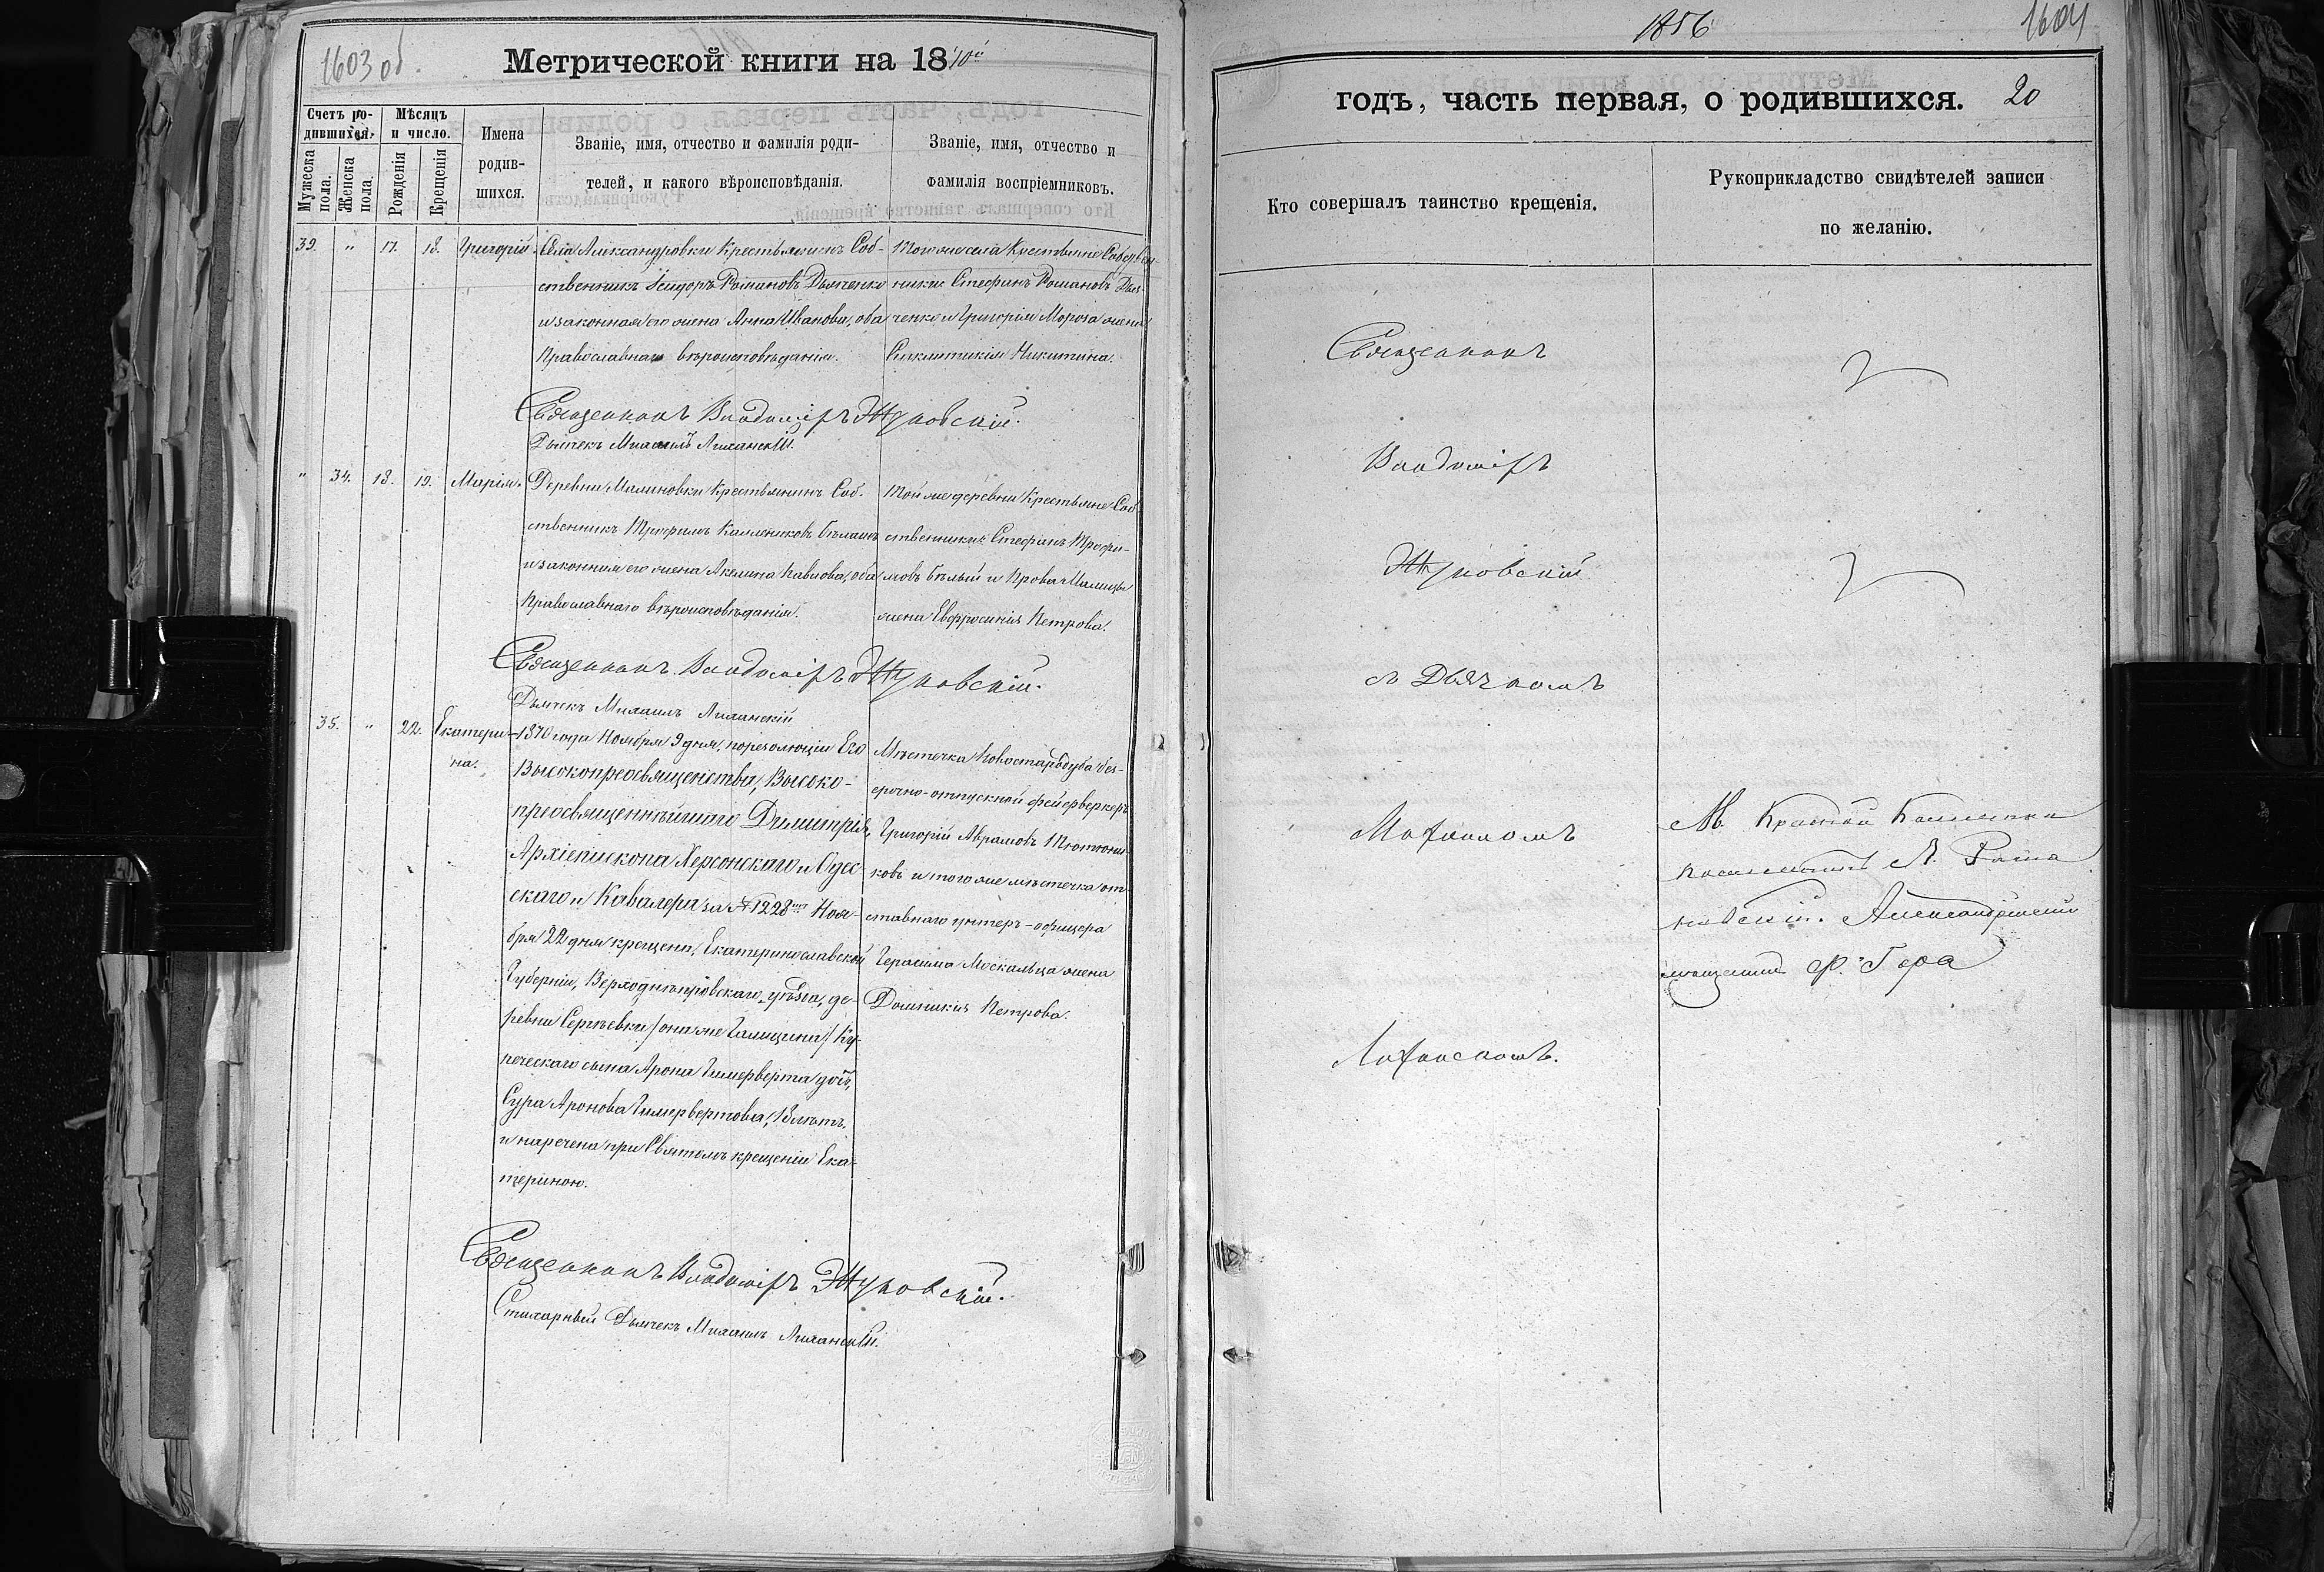 1603 об.
Метрической книги на 1870й
Счетъ ро-
дившихся.
Мѣсяцъ
и число.
Мужеска
пола.
Женска
пола.
Рожденія
Крещенія
Имена
родив-
шихся.
Званіе, имя, отчество и фамилія роди-
телей, и какого вѣроисповѣданія.
Званіе, имя, отчество и
фамилія воспріемниковъ.
39. " 17. 18. Григорій.
Села Александровки Крестьянинъ Соб-
ственникъ Ісидоръ Романовъ Дьяченко
и законная его жена Анна Иванова, оба
Православнаго вѣроисповѣданія.
Того же села Крестьяне Собствен-
ники Стефанъ Романовъ Дья-
ченко и Григорія Мороза жена
Синклитикія Никитина.
Священникъ Владиміръ Жуковскій.
Дьячекъ Михаилъ
" 34. 18. 19. Марія.
Деревни Малиновки Крестьянинъ Соб-
ственникъ Трофимъ Каллениковъ Бѣлый
и законная его жена Акилина Павлова, оба
Православнаго вѣроисповѣданія.
Той же деревни Крестьяне Соб-
ственники: Стефанъ Трофи-
мовъ Бѣлый и Прова
жена Евфросинія Петрова.
Священникъ Владиміръ Жуковскій.
Дьячекъ Михаилъ
35. " 22. Екатери-
на.
1870 года Ноября 9 дня, по резолюціи Его
Высокопреосвященства, Высоко-
преосвященнѣйшаго Димитрія,
Архіепископа Херсонскаго и Одес-
скаго и Кавалера за № 1228мъ Ноя-
бря 22 дня крещена, Екатеринославской
Губерніи, Верходнѣпровскаго уѣзда, де-
ревни Сергѣевки /она же Галицина/ Ку-
печескаго сына Арона Гимерверта дочь,
Сура Аронова Гимервертова, 18 лѣтъ,
и наречена при Святомъ крещеніи Ека-
териною.
Мѣстечка Новостародуба без-
срочно-отпускной фейерверкеръ
Григорій Абрамовъ Тютюни-
ковъ и того же мѣстечка от-
ставнаго унтеръ-офицера
Герасима Москальца жена
Домникія Петрова.
Священникъ Владиміръ Жуковскій.
Стихарный Дьячекъ Михаилъ
1856
1604
годъ, часть первая, о родившихся.
20
Кто совершалъ таинство крещенія.
Рукоприкладство свидѣтелей записи
по желанію.
Священникъ
Владиміръ
Жуковскій
съ Дьячкомъ
Михаиломъ
М. Красной Каменки
Александрійскій
мѣщанинъ Ф. Гора